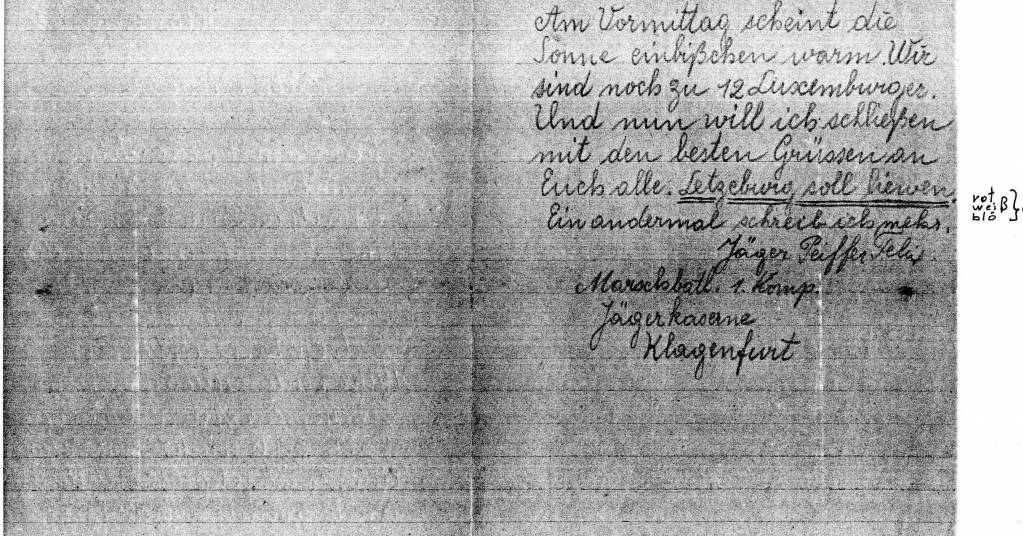 Am Vormittag scheint die
Sonne einbißchen warm. Wir
sind noch zu 12 Luxemburger.
Und nun will ich schließen
mit den besten Grüssen an
Euch alle. Letzeburg soll liewen.
Ein andermal schreib ich mehr.
Jäger Peiffer Felix.
Marschbatl. 1. Komp.
Jägerkaserne
Klagenfurt
rot
weiß }
bló